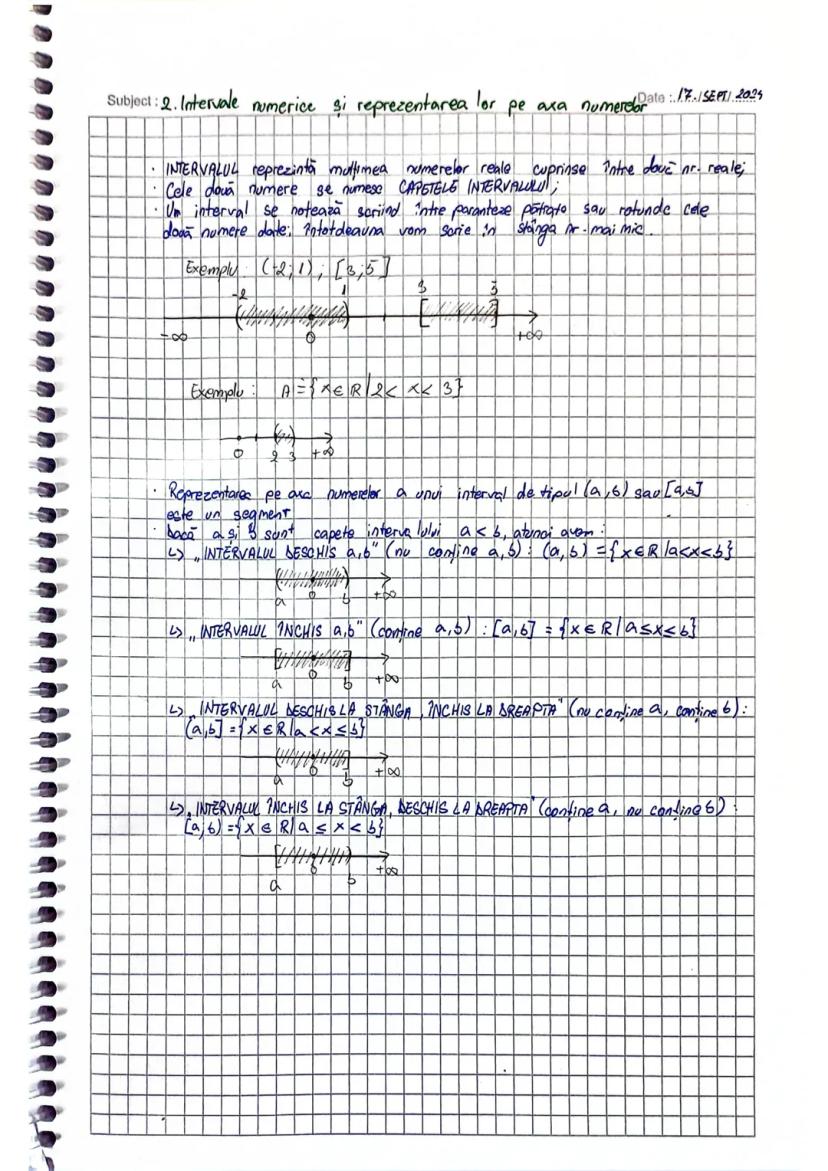 Subject : 2. Intervale numerice și reprezentarea lor pe axa numerelor Date : 17. / SEPT / 2024
· INTERVALUL reprezintă mulțimea numerelor reale cuprinse între două nr. reale;
· Cele două numere se numesc CAPETELE INTERVALULUI;
· Un interval se notează scriind între paranteze pătrate sau rotunde cele
două numere date; întotdeauna vom scrie în stânga nr. mai mic.
Exemplu : (-2;1) ; [3;5]
-2 1 3 5
-∞ 0 +∞
Exemplu : A = {x∈ℝ | 2 < x < 3}
0 2 3 +∞
· Reprezentarea pe axa numerelor a unui interval de tipul (a,b) sau [a,b]
este un segment
· Dacă a și b sunt capete intervalului a < b, atunci avem :
↳ „INTERVALUL DESCHIS a,b" (nu conține a,b) : (a,b) = {x∈ℝ | a<x<b}
a 0 b +∞
↳ „INTERVALUL ÎNCHIS a,b" (conține a,b) : [a,b] = {x∈ℝ | a≤x≤b}
a 0 b +∞
↳ „INTERVALUL DESCHIS LA STÂNGA, ÎNCHIS LA DREAPTA" (nu conține a, conține b) :
(a,b] = {x∈ℝ | a<x≤b}
a 0 b +∞
↳ „INTERVALUL ÎNCHIS LA STÂNGA, DESCHIS LA DREAPTA" (conține a, nu conține b) :
[a;b) = {x∈ℝ | a ≤ x < b}
a 0 b +∞